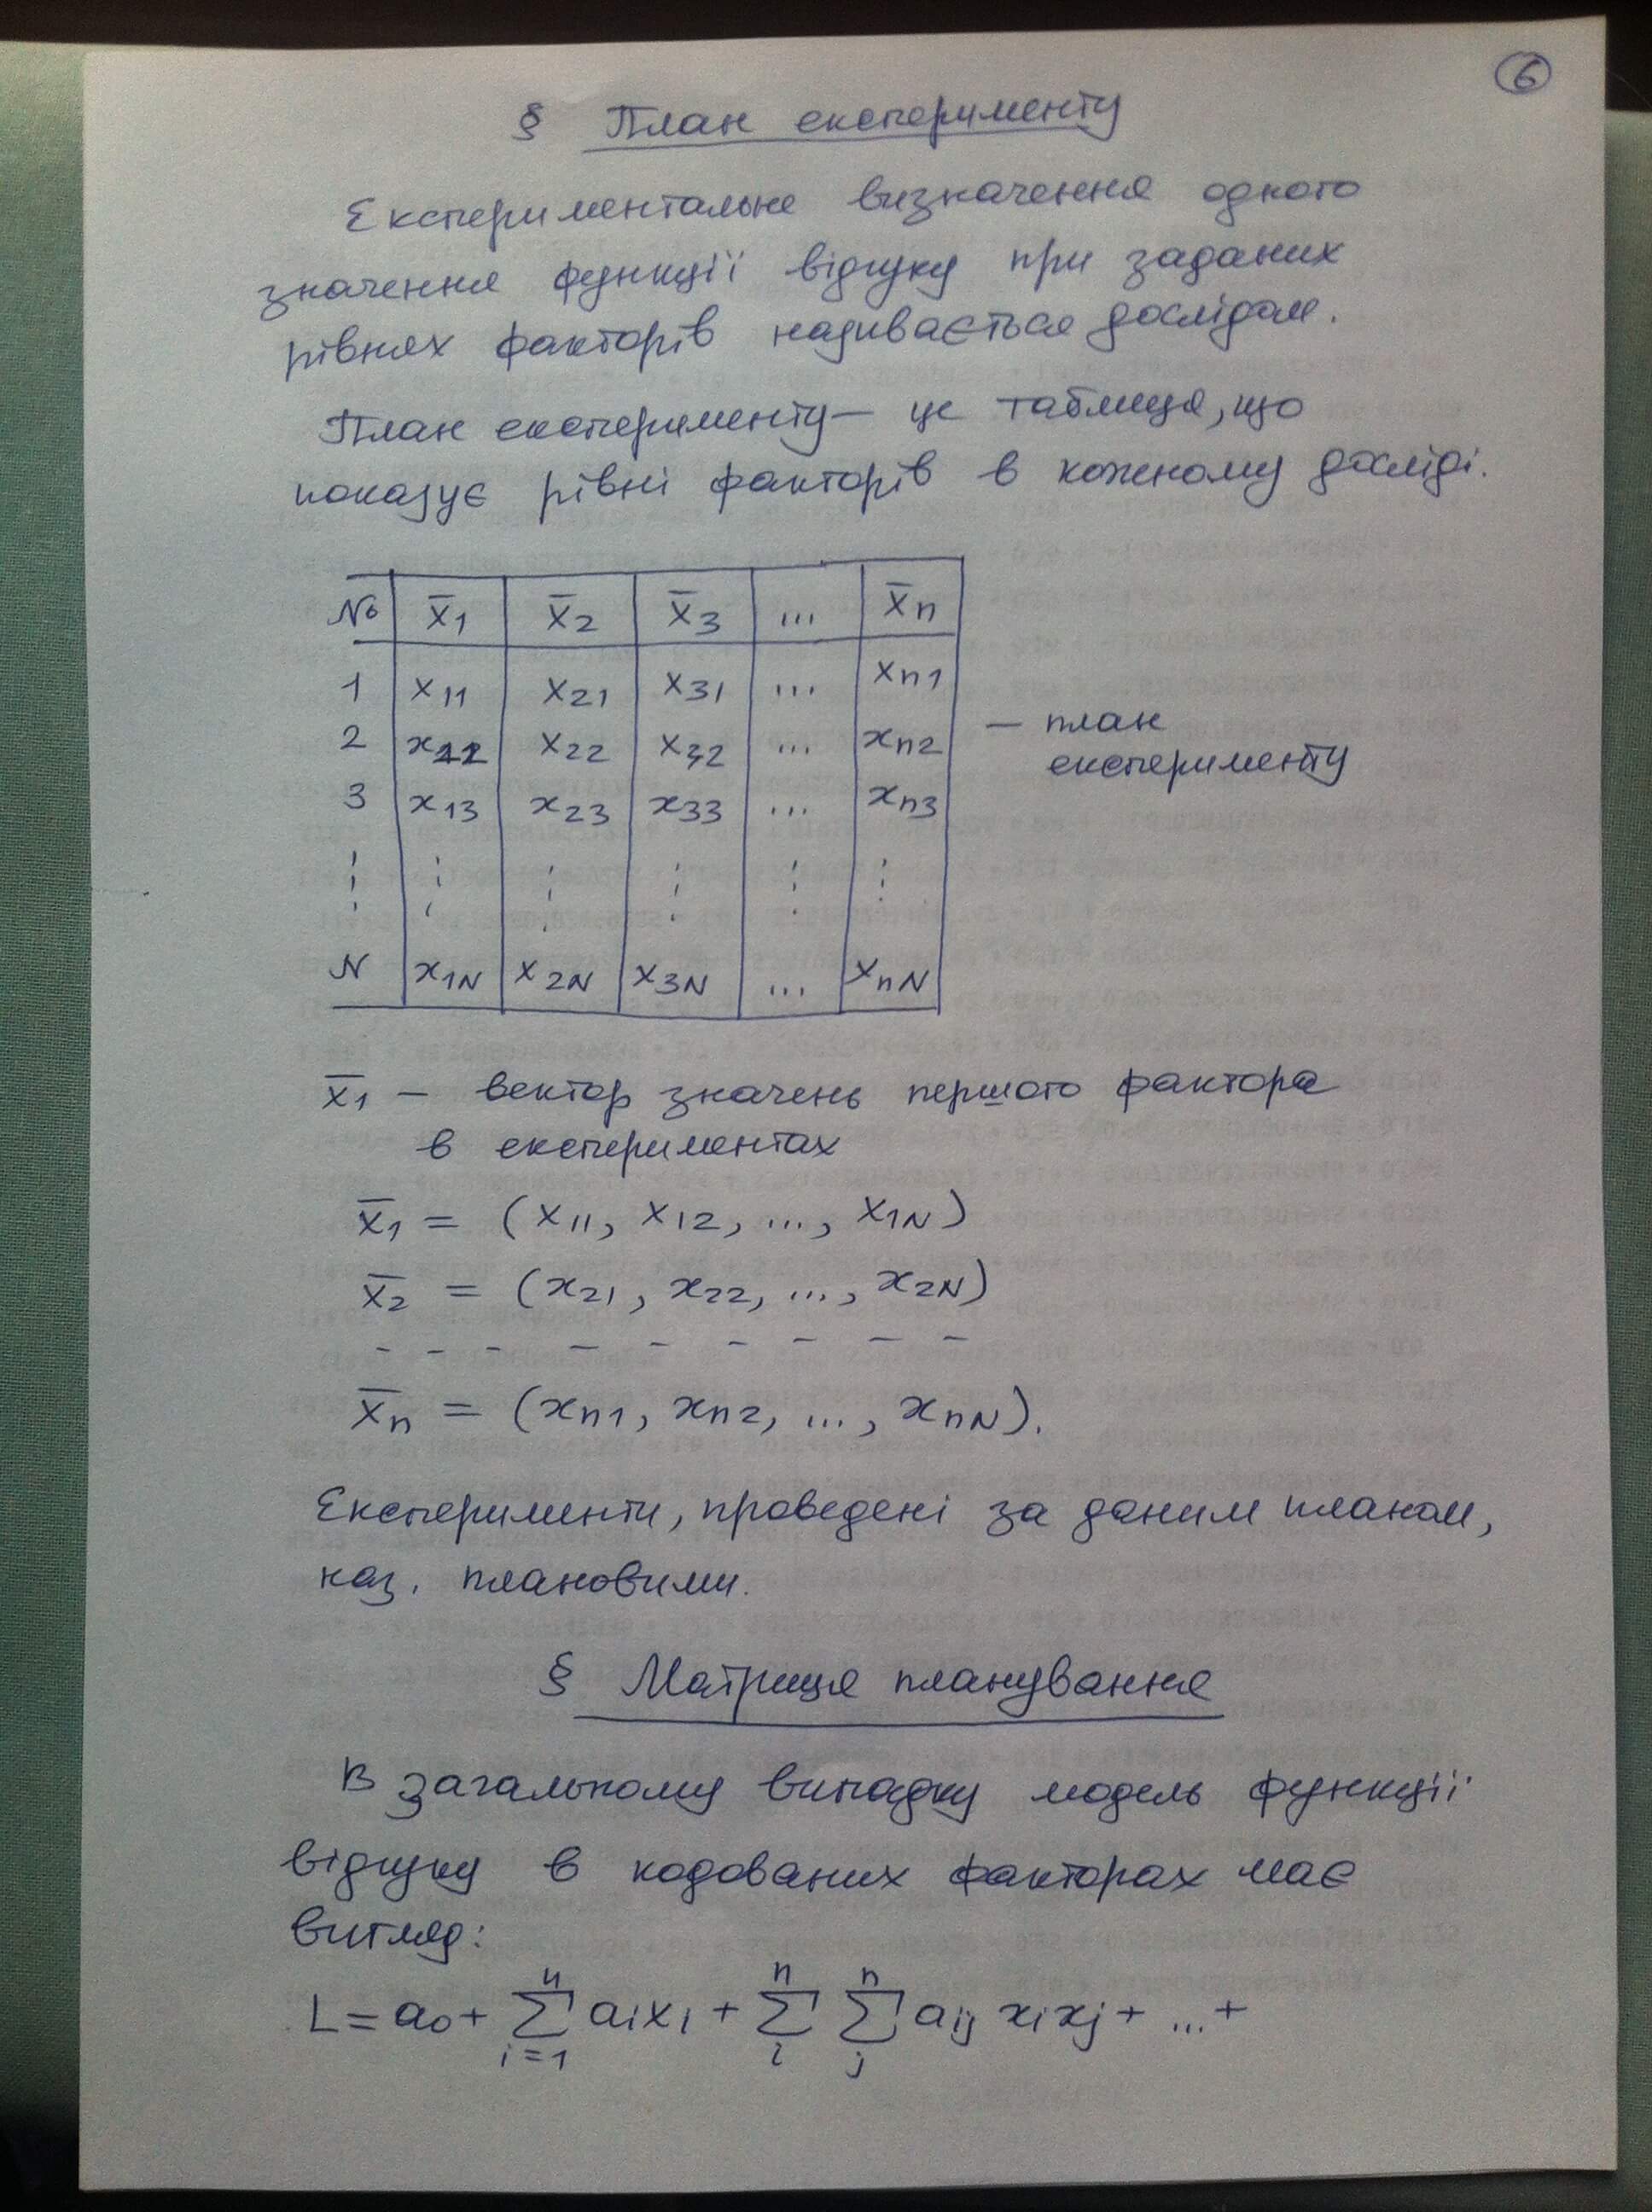 6
§ План експерименту
Експериментальне визначення одного
значення функції відгуку при заданих
рівнях факторів називається дослідом.
План експерименту – це таблиця, що
показує рівні факторів в кожному досліді.
№ x̄1 x̄2 x̄3 ... x̄n
1 x11 x21 x31 ... xn1
2 x12 x22 x32 ... xn2
3 x13 x23 x33 ... xn3
⋮ ⋮ ⋮ ⋮ ⋮ ⋮
N x1N x2N x3N ... xnN
– план
експерименту
x̄1 – вектор значень першого фактора
в експериментах
x̄1 = (x11, x12, ..., x1N)
x̄2 = (x21, x22, ..., x2N)
- - - - - - - - -
x̄n = (xn1, xn2, ..., xnN).
Експерименти, проведені за даним планом,
наз. плановими.
§ Матриця планування
В загальному випадку модель функції
відгуку в кодованих факторах має
вигляд:
L = a0 + ∑_{i=1}^{n} aixi + ∑_{i}^{n} ∑_{j}^{n} aij xixj + ... +